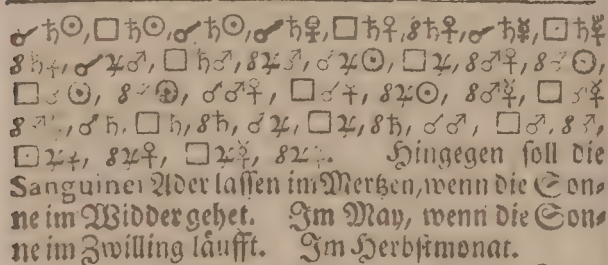 ☌♄☉, □♄☉, ☌♄☉, ☌♄☿, □♄♀, ☍♄♀, ☌♄☿, □♄☿
☍♄, ☌♃♂, □♄♂, ☍♃♂, ☌♃☉, □♃, ☍♂♀, ☍☉,
□☉, ☍, ☌♂♀, □♂♀, ☍♃☉, ☍♂☿, □♂☿
☍, ☌♄, □♄, ☍♄, ☌♃, □♃, ☍♄, ☌♂, □♂, ☍♂,
□♃, ☍♃♀, □♃☿, ☍♃. Hingegen ſoll die
Sanguinei Ader laſſen im Mertzen, wenn die Son⸗
ne im Widder gehet. Im May, wenn die Son⸗
ne im Zwilling läufft. Im Herbſtmonat.